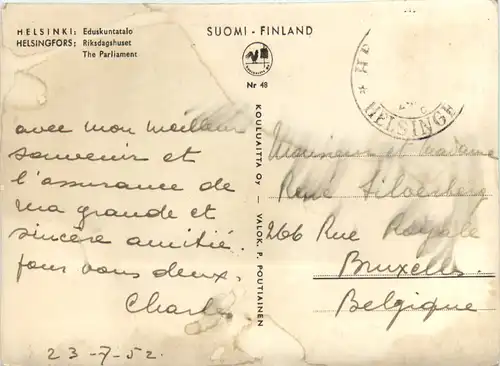 HELSINKI: Eduskuntatalo
HELSINGFORS: Riksdagshuset
The Parliament
SUOMI - FINLAND
Nr 48
KOULUAITTA Oy — VALOK. P. POUTIAINEN
HELSINGF
avec mon meilleur
souvenir et
l'assurance de
ma grande et
sincère amitié.
pour vous deux.
Charles
23-7-52.
Monsieur et madame
René Silverberg
266 Rue Royale
Bruxelles.
Belgique